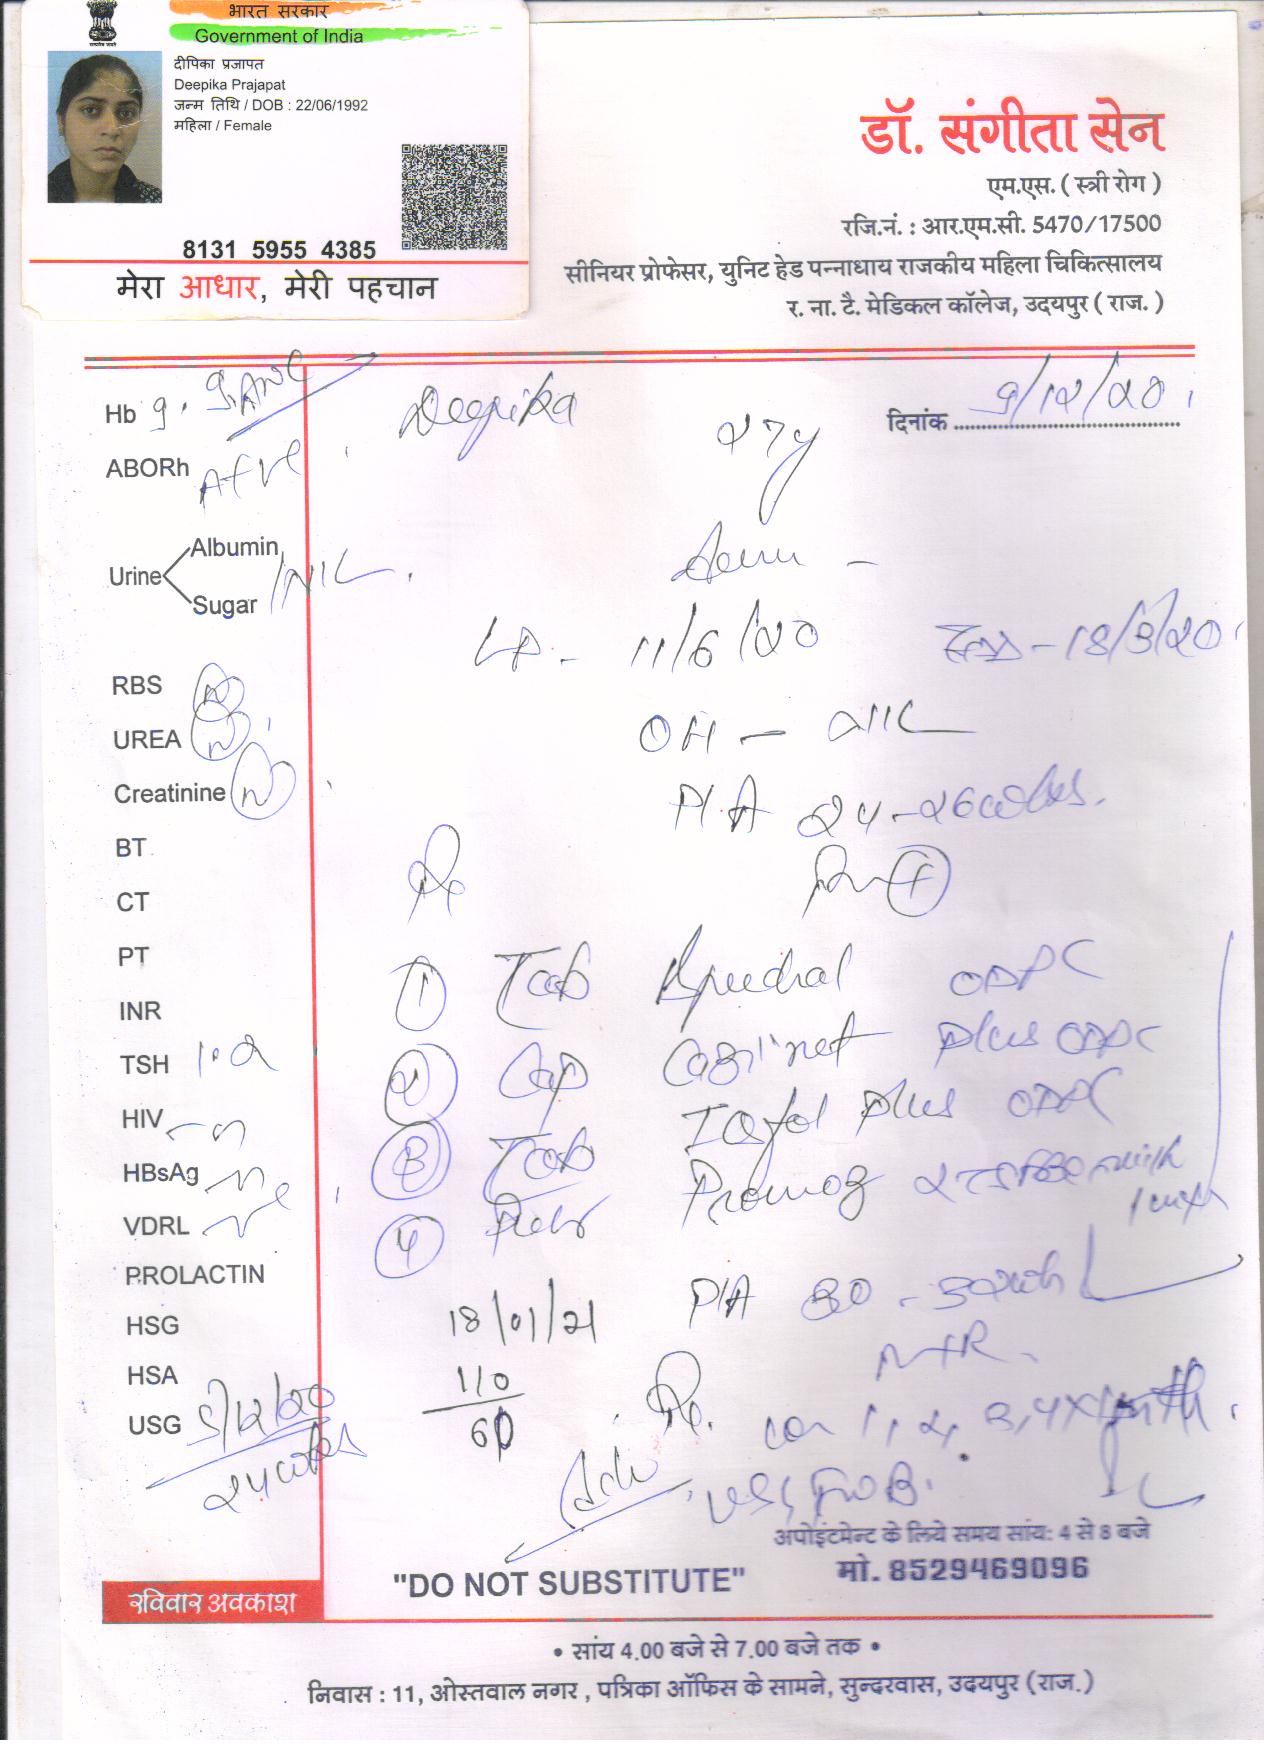 भारत सरकार
Government of India
दीपिका प्रजापत
Deepika Prajapat
जन्म तिथि / DOB : 22/06/1992
महिला / Female
8131 5955 4385
मेरा आधार, मेरी पहचान
डॉ. संगीता सेन
एम.एस. ( स्त्री रोग )
रजि.नं. : आर.एम.सी. 5470/17500
सीनियर प्रोफेसर, युनिट हेड पन्नाधाय राजकीय महिला चिकित्सालय
र. ना. टै. मेडिकल कॉलेज, उदयपुर ( राज. )
Hb 9. ANC Deepika 27y दिनांक 9/12/20
ABORh A+ve
Urine Albumin Sugar NIL
11/6/20 - 18/3/20
RBS N
UREA N
Creatinine N
OH - NIL
P/A 24-26 wks.
BT
CT
PT
INR
TSH 1.2
HIV
HBsAg
VDRL
PROLACTIN
HSG
HSA
USG 5/12/20
24 wks
Rx
1 Tab ODPC
2 Cap Plus ODPC
3 Tab Plus ODPC
4 Promog 2 TSF with
18/01/21 P/A 30-32 wks
110/60 Rx. 1, 2, 3, 4 x 1 month
Adv
अपोइंटमेन्ट के लिये समय सांय: 4 से 8 बजे
मो. 8529469096
"DO NOT SUBSTITUTE"
रविवार अवकाश
• सांय 4.00 बजे से 7.00 बजे तक •
निवास : 11, ओस्तवाल नगर , पत्रिका ऑफिस के सामने, सुन्दरवास, उदयपुर (राज.)